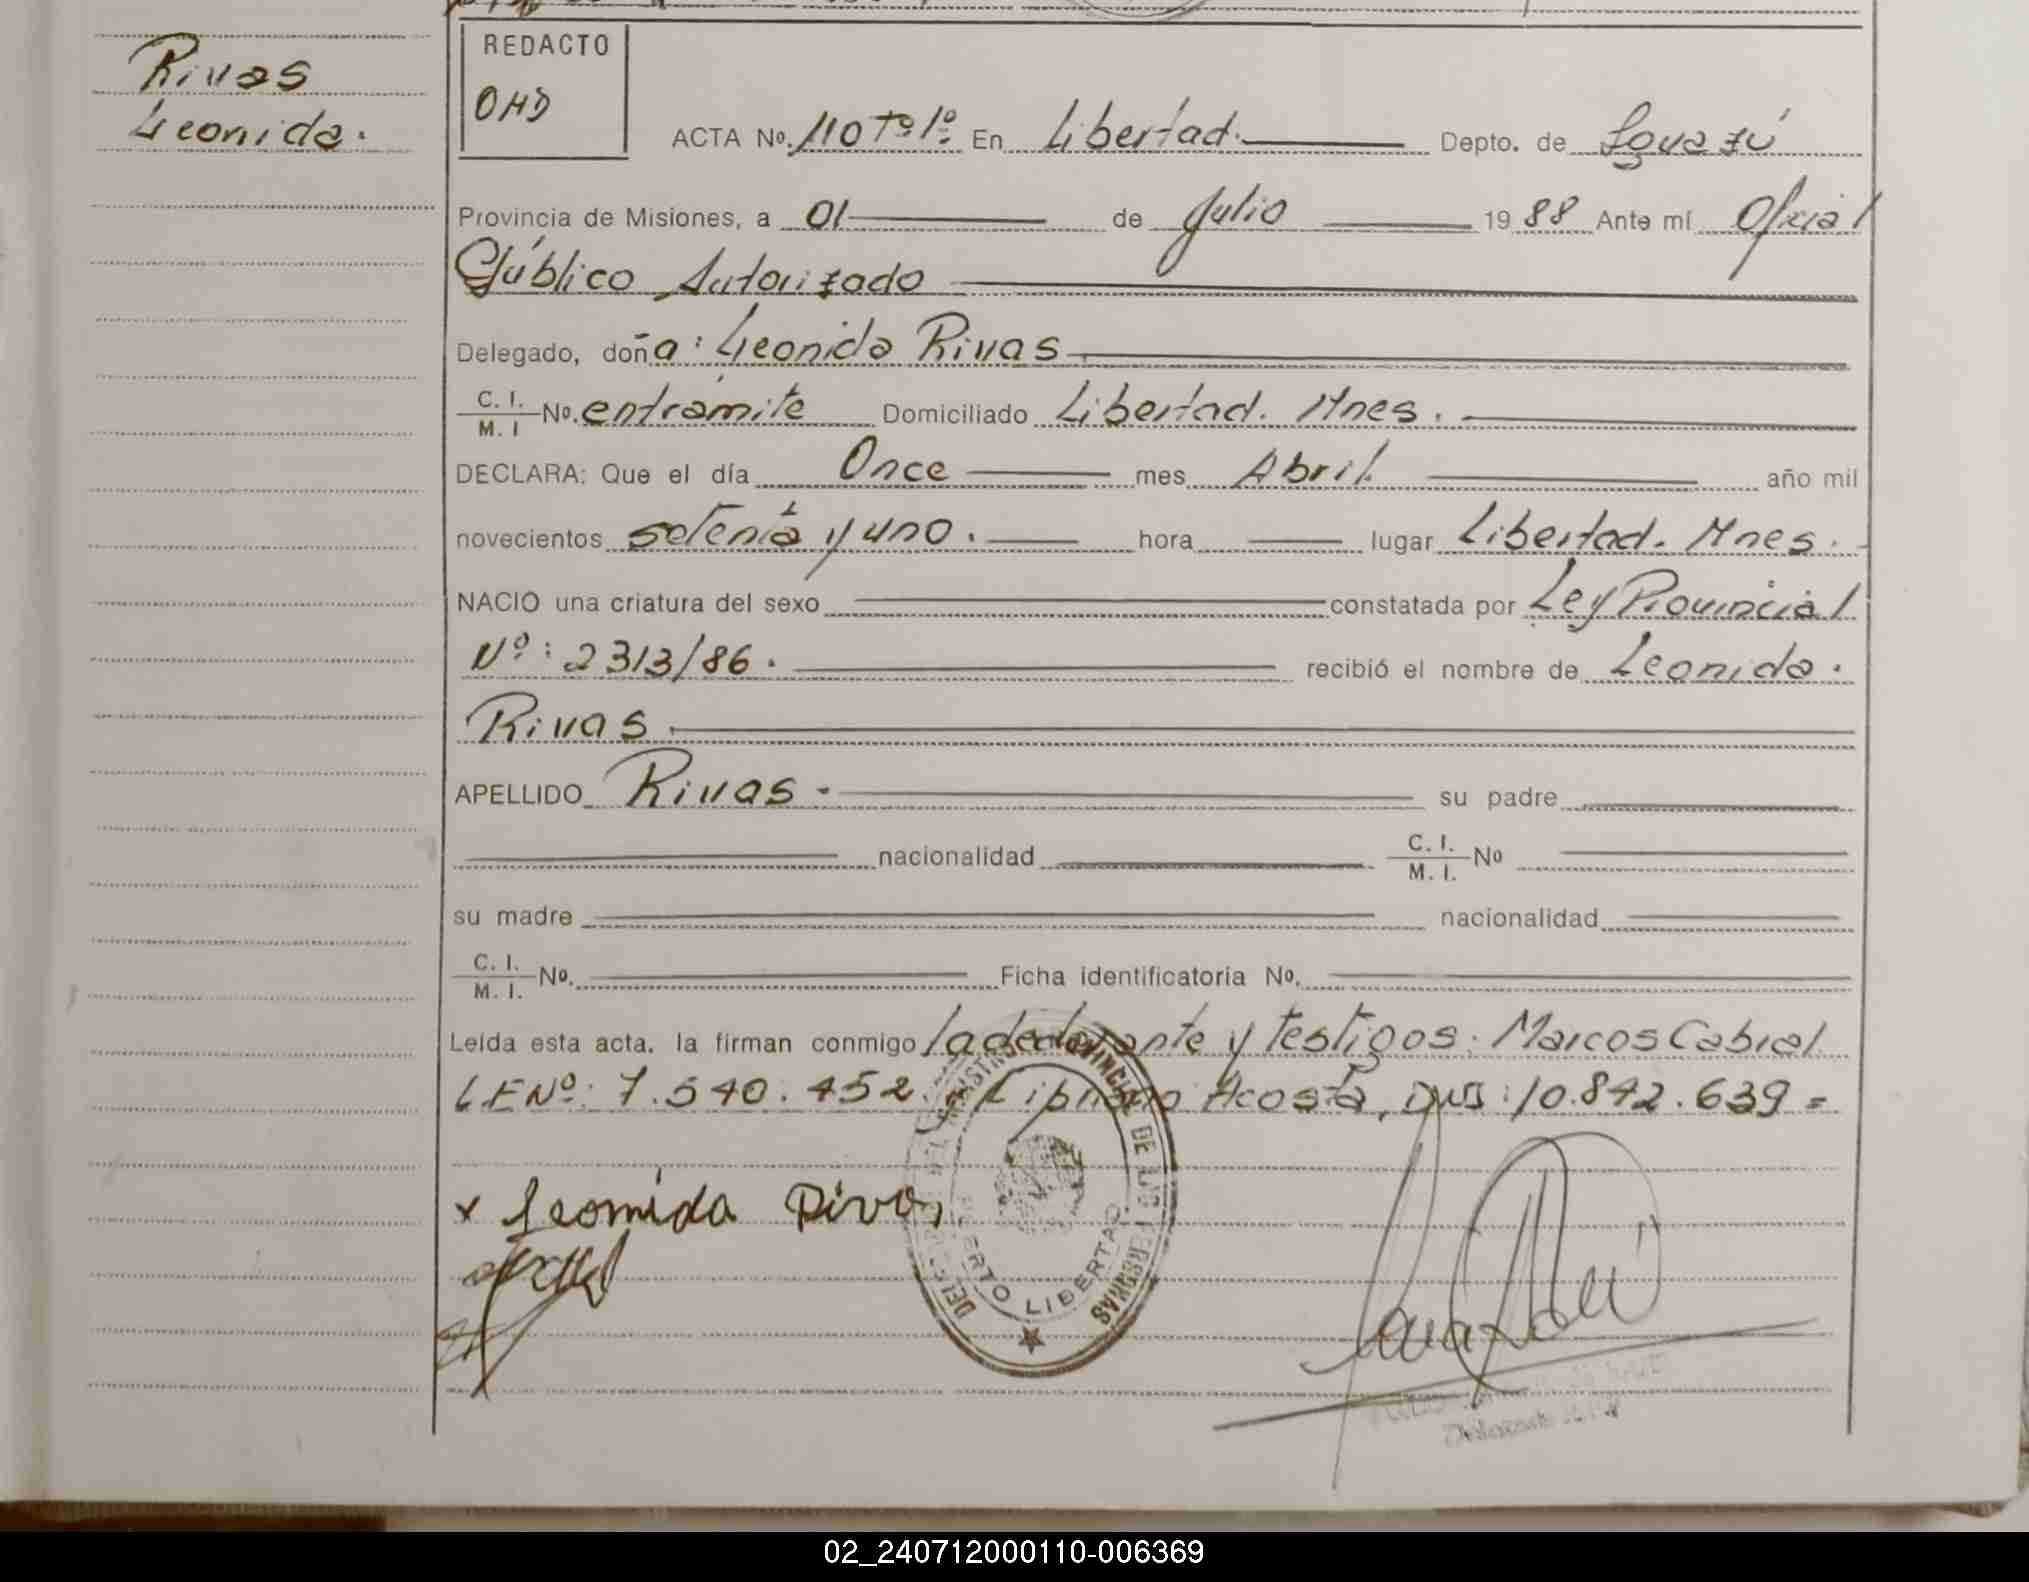 Rivas
Leonida.
REDACTO
OHD
ACTA Nº. 110 Tº 1º En Libertad. Depto. de Iguazú
Provincia de Misiones, a 01 de Julio 19 88 Ante mí Oficial
Público Autorizado
Delegado, doña: Leonida Rivas
C. I. / M. I Nº. entrámite Domiciliado Libertad. Mnes.
DECLARA: Que el día Once mes Abril. año mil
novecientos setenta y uno. hora lugar Libertad. Mnes.
NACIO una criatura del sexo constatada por Ley Provincial
Nº: 2313/86. recibió el nombre de Leonida.
Rivas.
APELLIDO Rivas - su padre
nacionalidad C. I. / M. I. Nº
su madre nacionalidad
C. I. / M. I. Nº. Ficha identificatoria Nº.
Leída esta acta. la firman conmigo la declarante y testigos. Marcos Cabral
LE Nº: 7.540.452. Cipriano Acosta, DNI: 10.842.639 =
x Leonida Rivas
PROVINCIA DE LAS PERSONAS
PUERTO LIBERTAD
02_240712000110-006369